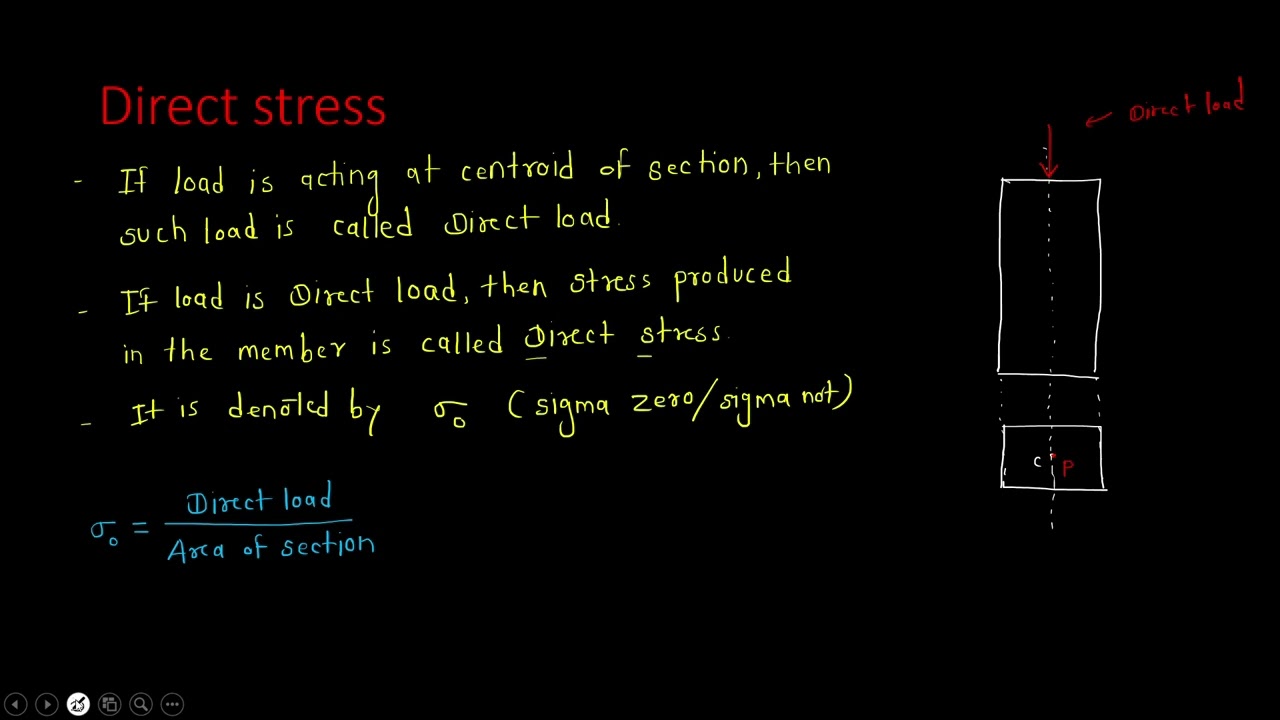 Direct stress
- If load is acting at centroid of section, then
such load is called Direct load.
- If load is Direct load, then stress produced
in the member is called Direct stress.
- It is denoted by σ₀ (sigma zero/sigma not)
σ₀ = Direct load
Area of section
Direct load
C P